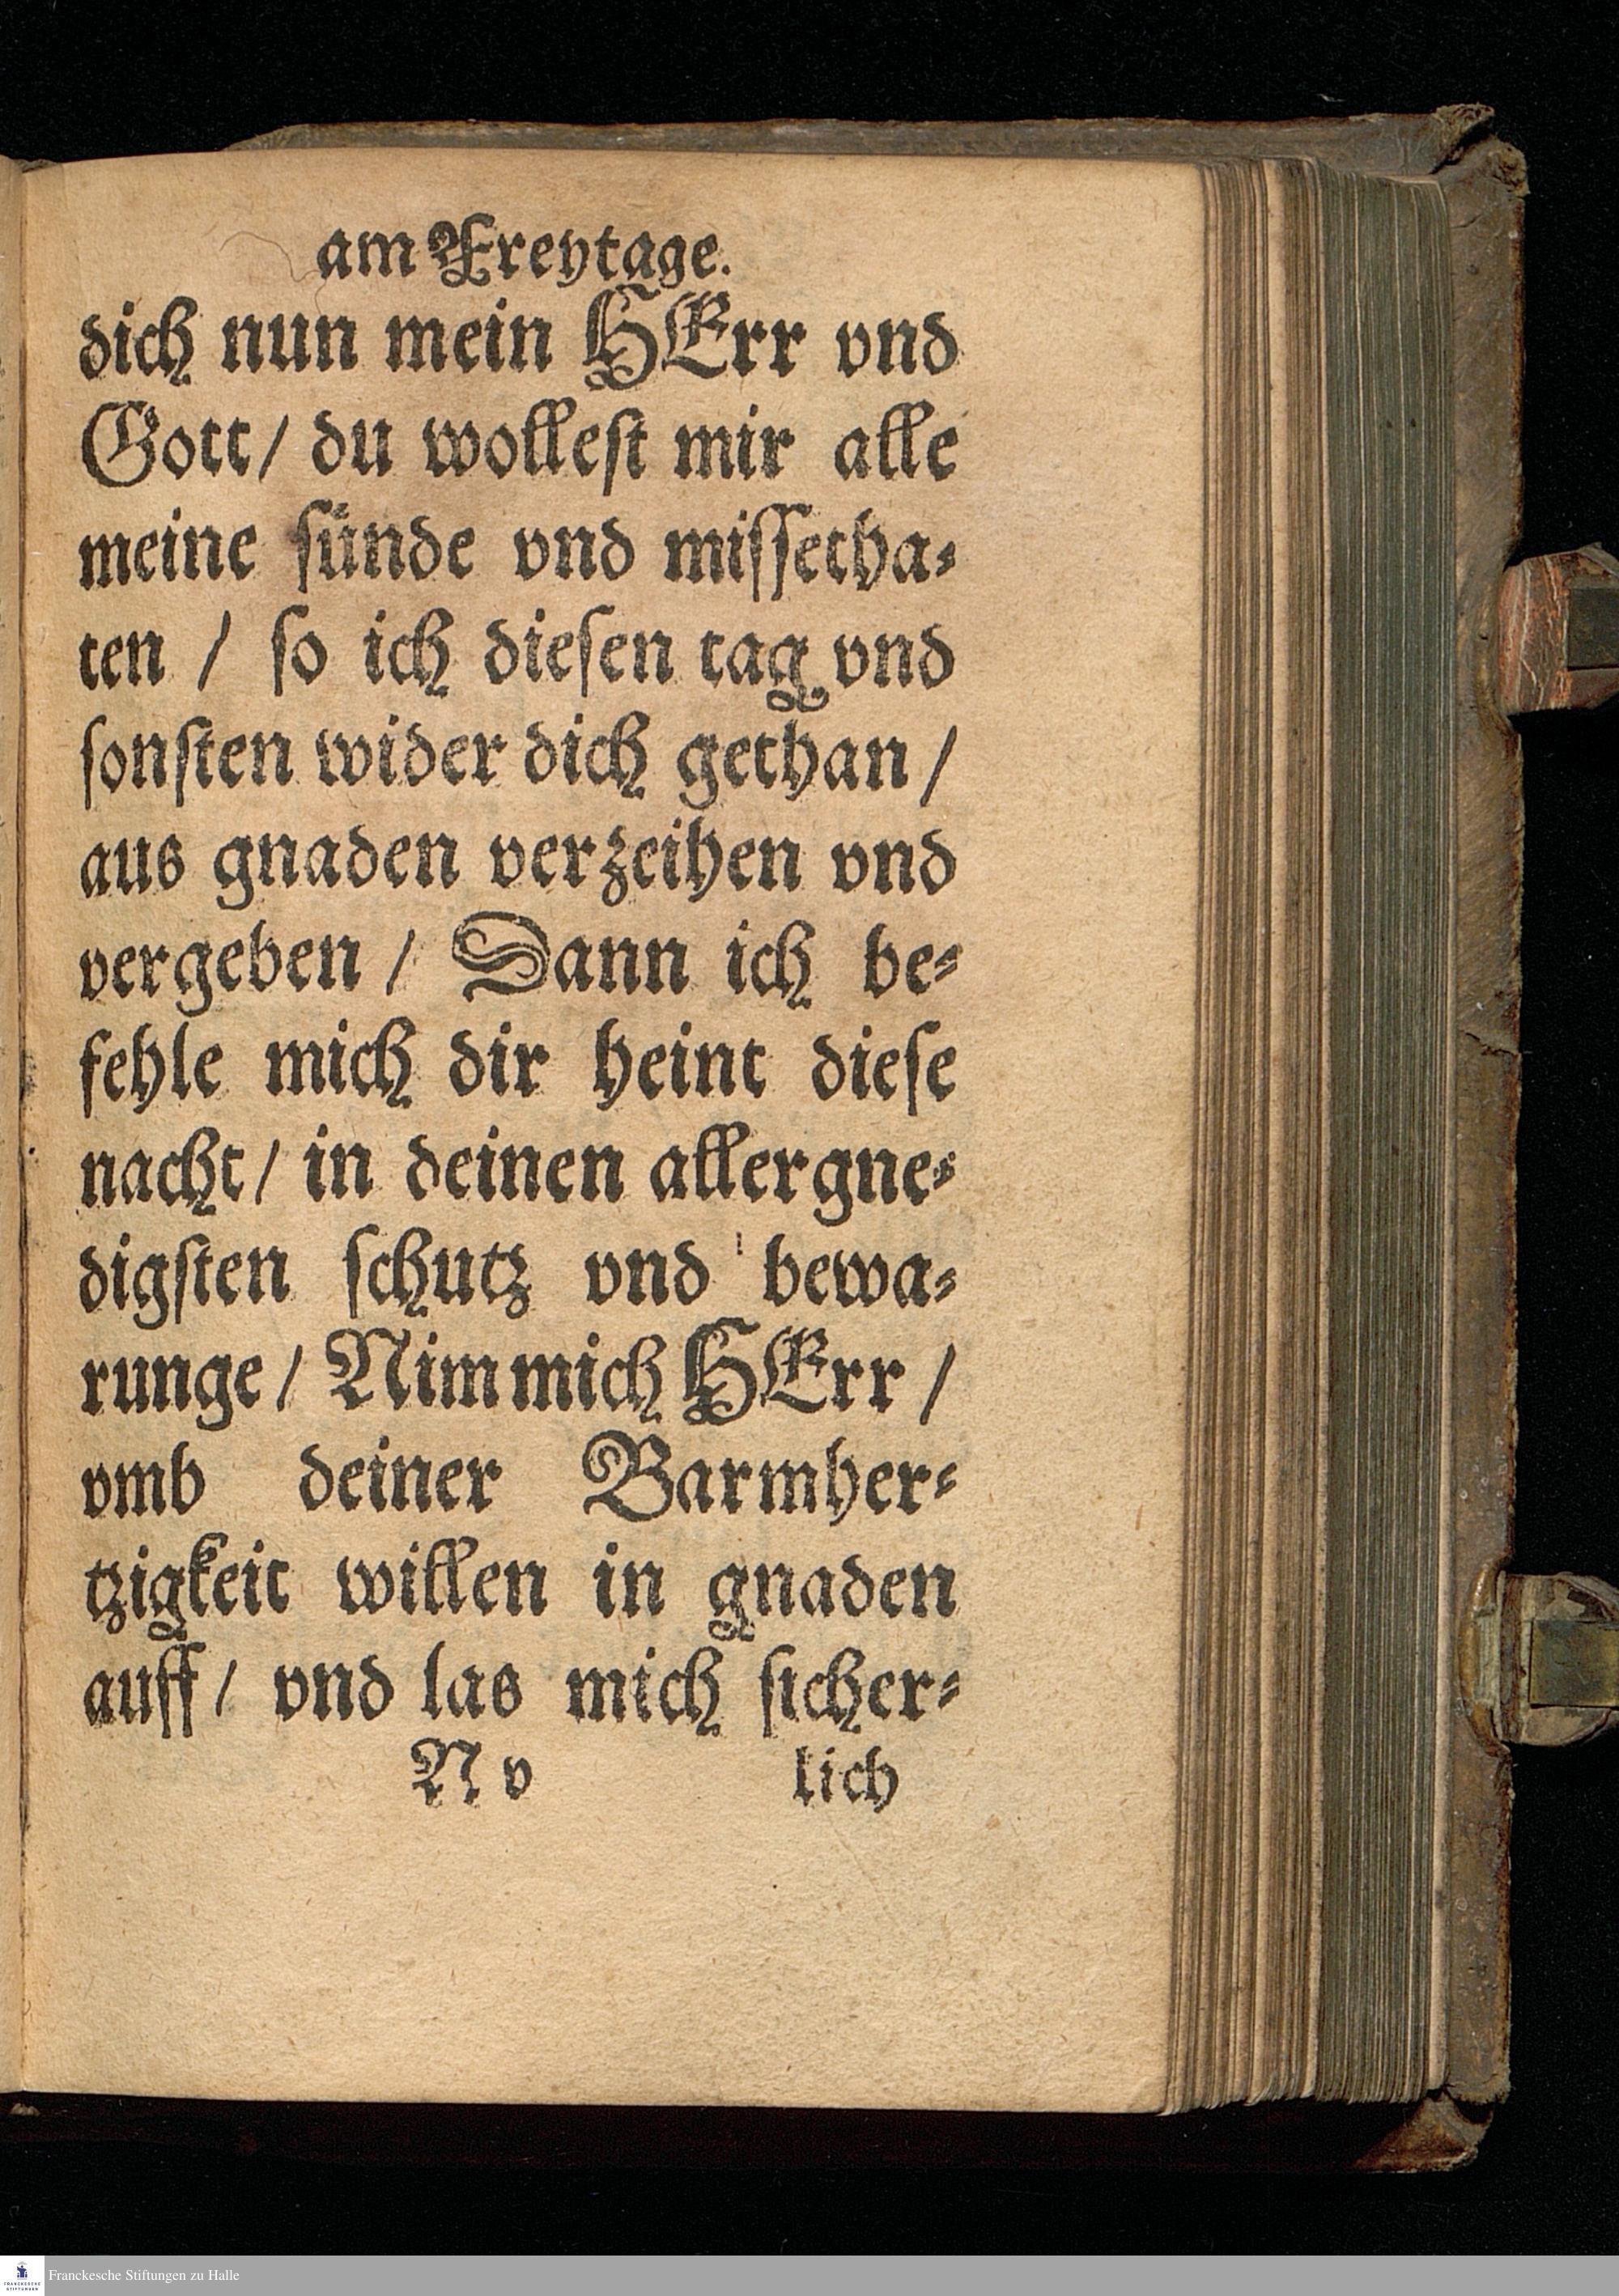 am Freytage.
dich nun mein HErr vnd
Gott/ du wollest mir alle
meine sünde vnd missetha⸗
ten / so ich diesen tag vnd
sonsten wider dich gethan /
aus gnaden verzeihen vnd
vergeben / Dann ich be⸗
fehle mich dir heint diese
nacht/ in deinen allergne⸗
digsten schutz vnd bewa⸗
runge/ Nim mich HErr /
vmb deiner Barmher⸗
tzigkeit willen in gnaden
auff/ vnd las mich sicher⸗
N v lich
FRANCKESCHE STIFTUNGEN
Franckesche Stiftungen zu Halle